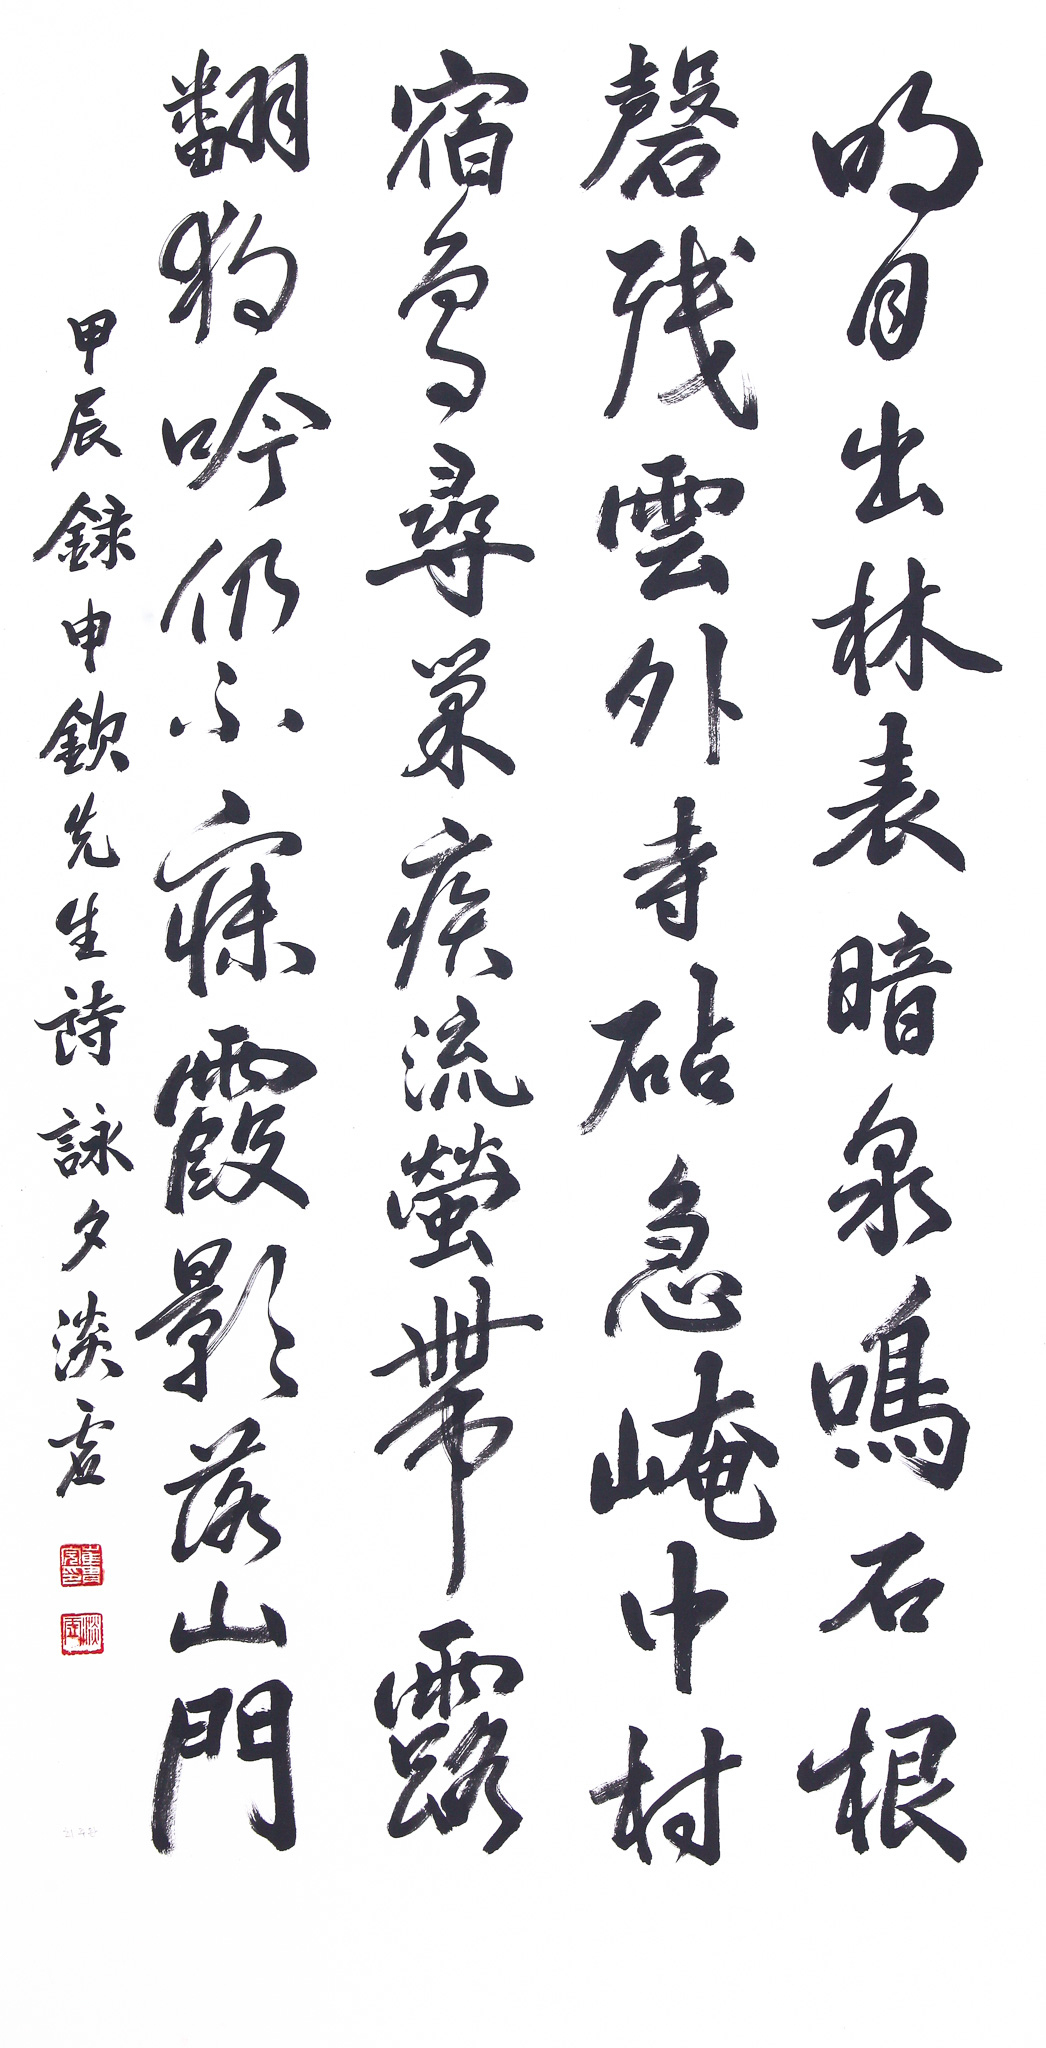 明月出林表暗泉鳴石根
磬殘雲外寺砧急崦中村
宿鳥尋巢疾流螢帶露
翻獨吟仍不寐霞影落山門
甲辰錄申欽先生詩詠夕淡虛